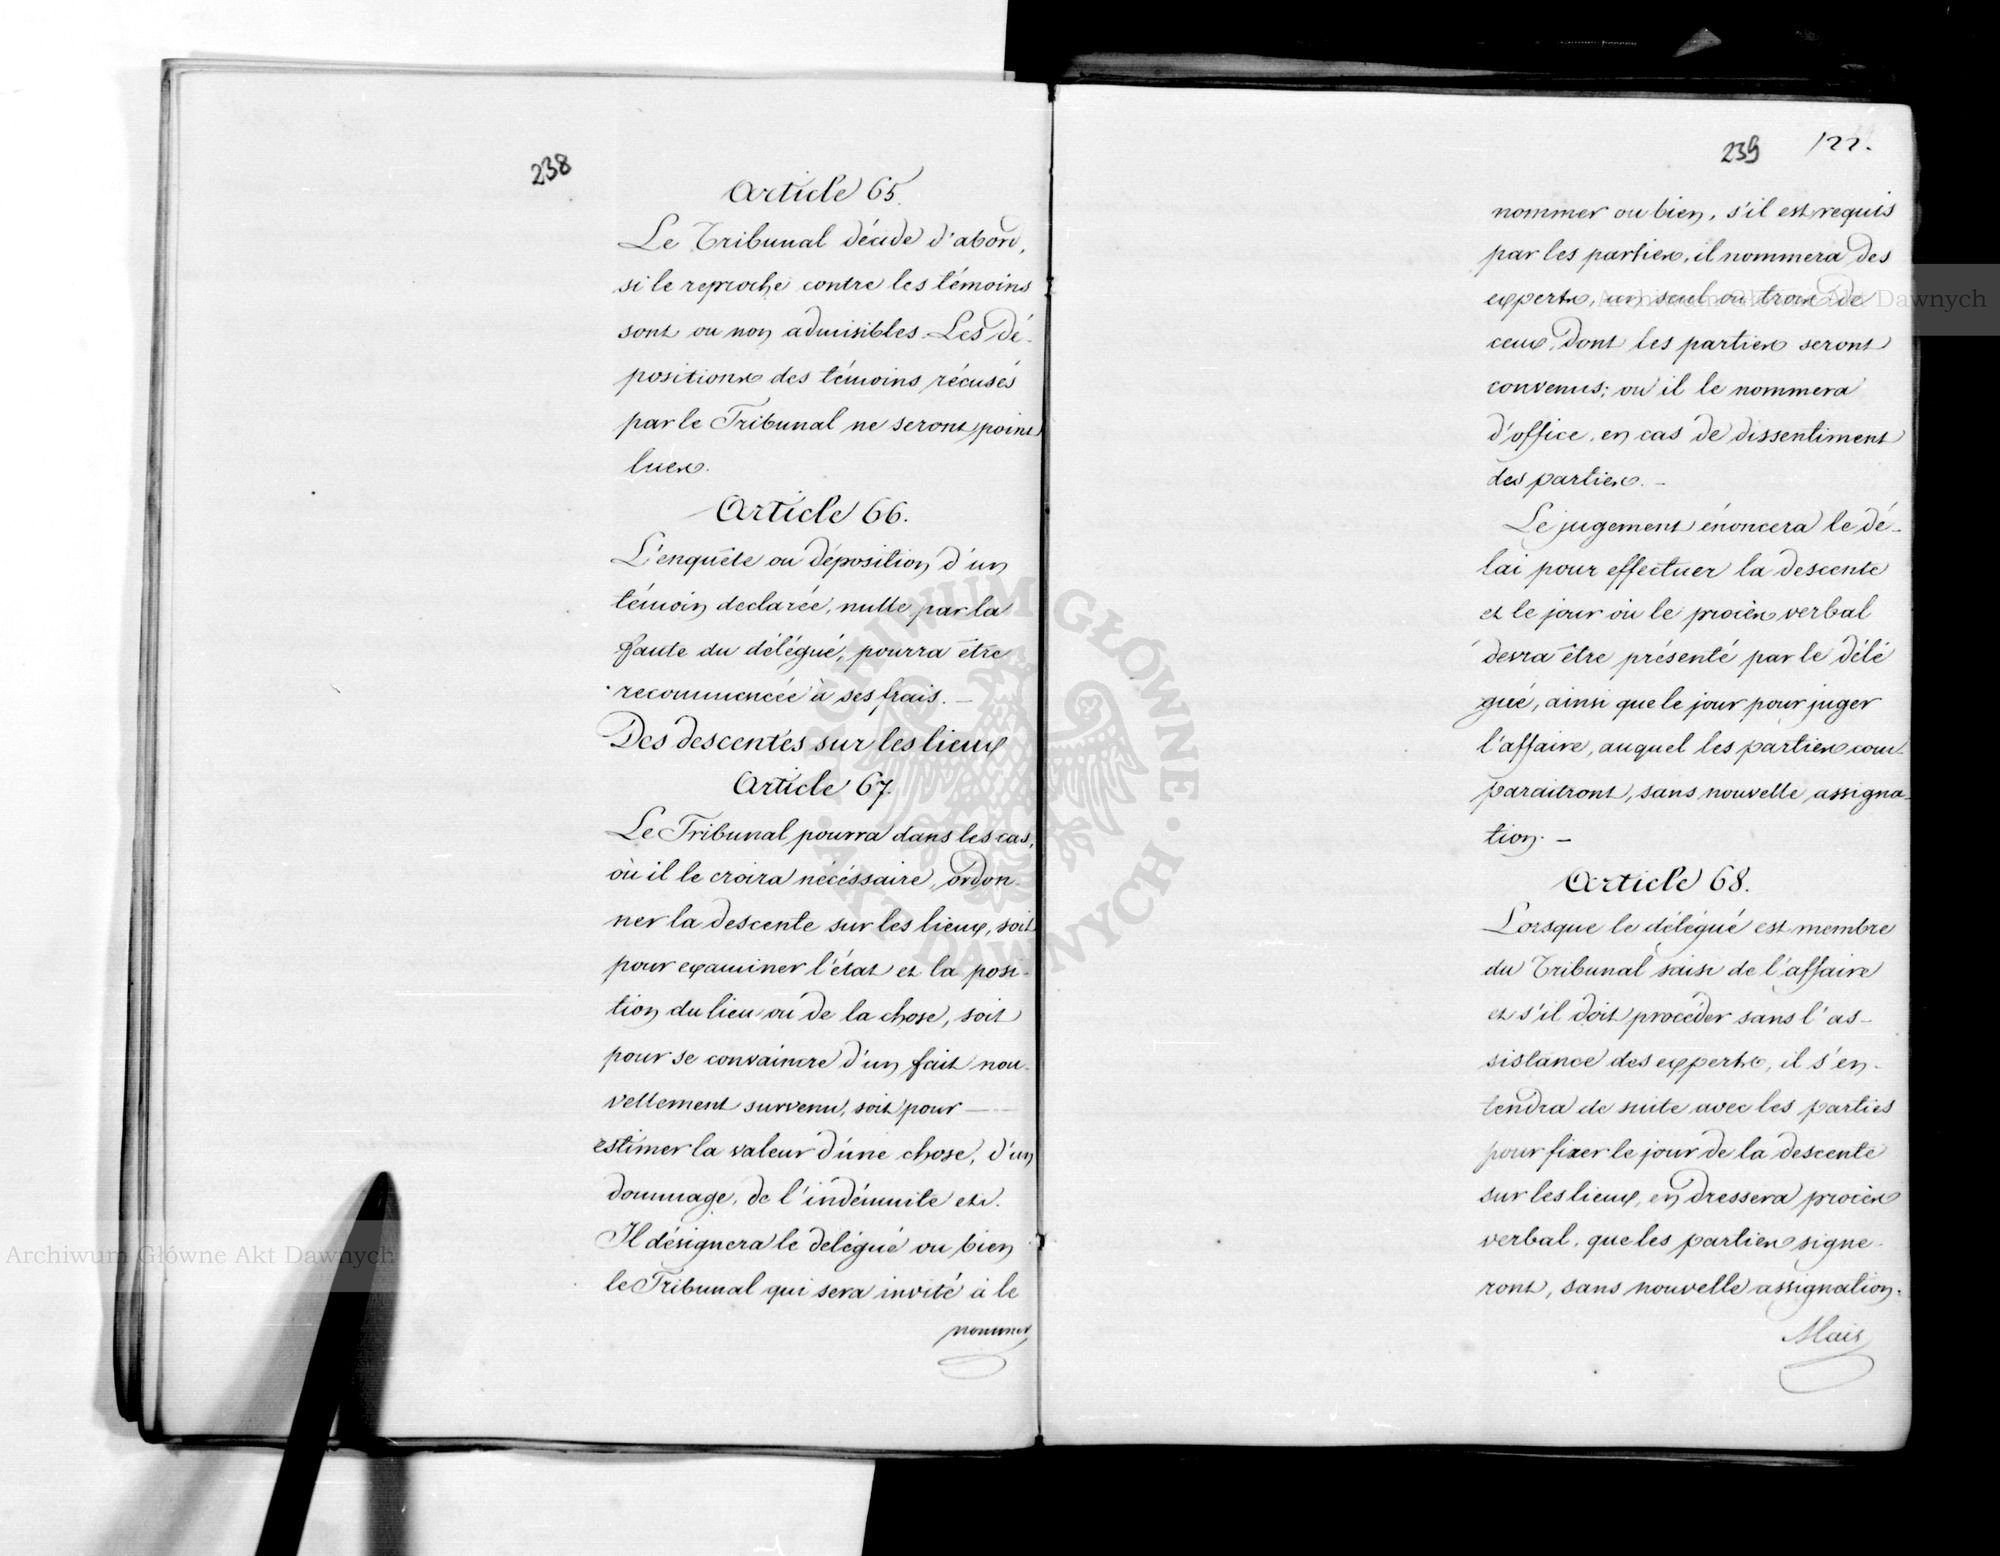 238
Article 65.
Le Tribunal décide d'abord,
si le reproche contre les témoins
sont ou non admisibles. Les dé-
positions des témoins récusés
par le Tribunal ne seront point
lues.
Article 66.
L'enquête ou déposition d'un
témoin declarée, nulle par la
faute du délégué, pourra être
recommencée à ses frais. —
Des descentes sur les lieux
Article 67.
Le Tribunal pourra dans les cas,
où il le croira nécéssaire, ordon-
ner la descente sur les lieux, soit
pour examiner l'état et la posi-
tion du lieu ou de la chose, soit
pour se convaincre d'un fait nou-
vellement survenu, soit pour —
estimer la valeur d'une chose, d'un
dommage, de l'indémnité etc.
Il désignera le délégué ou bien
le Tribunal qui sera invité à le
nommer
239 122.
nommer ou bien, s'il est requis
par les parties, il nommera des
experts, un seul ou trois de
ceux dont les parties seront
convenus; ou il le nommera
d'office, en cas de dissentiment
des parties. —
Le jugement énoncera le dé-
lai pour effectuer la descente
et le jour où le procès verbal
devra être présenté par le délé
gué, ainsi que le jour pour juger
l'affaire, auquel les parties com-
paraitront, sans nouvelle assigna-
tion. —
Article 68.
Lorsque le délégué est membre
du Tribunal saisi de l'affaire
et s'il doit procéder sans l'as-
sistance des experts, il s'en-
tendra de suite avec les parties
pour fixer le jour de la descente
sur les lieux, en dressera procès
verbal, que les parties signe-
ront, sans nouvelle assignation.
Mais
Archiwum Główne Akt Dawnych
Archiwum Główne Akt Dawnych
ARCHIWUM GŁÓWNE · AKT DAWNYCH ·